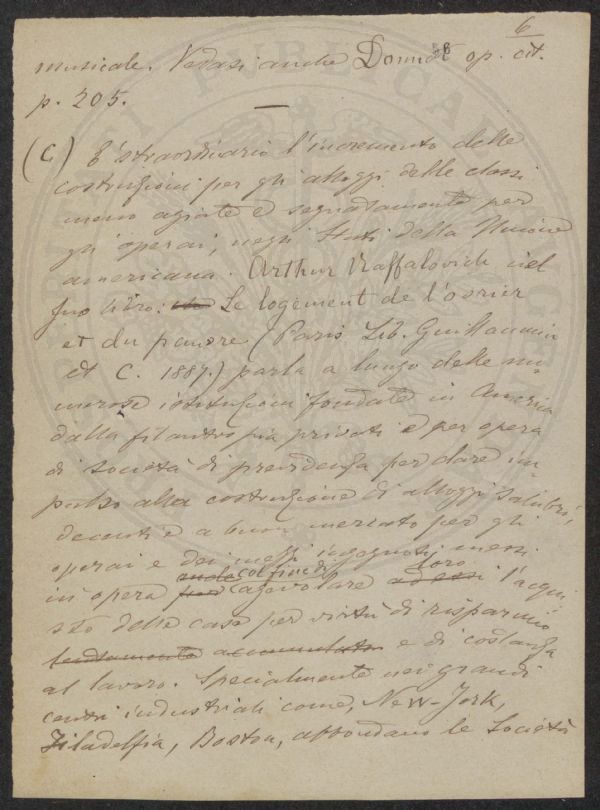 6
musicale. Vedasi anche Donnat op. cit.
p. 205.
(C) È straordinario l'incremento delle
costruzioni per gli alloggi delle classi
meno agiate e segnatamente per
gli operai, negli Stati della Unione
americana. Arthur Raffalovich nel
suo libro: Le logement de l'ouvrier
et du pauvre (Paris Lib. Guillaumin
et C. 1887.) parla a lungo delle nu-
merose istituzioni fondate in America
dalla filantropia privata e per opera
di società di previdenza per dare im-
pulso alla costruzione di alloggi salubri,
decenti e a buon mercato per gli
operai e dei mezzi ingegnosi messi
in opera col fine di agevolare loro l'acqui-
sto delle case per virtù di risparmio
lentamente accumulato e di costanza
al lavoro. Specialmente nei grandi
centri industriali come, New-York,
Filadelfia, Boston, abbondano le Società